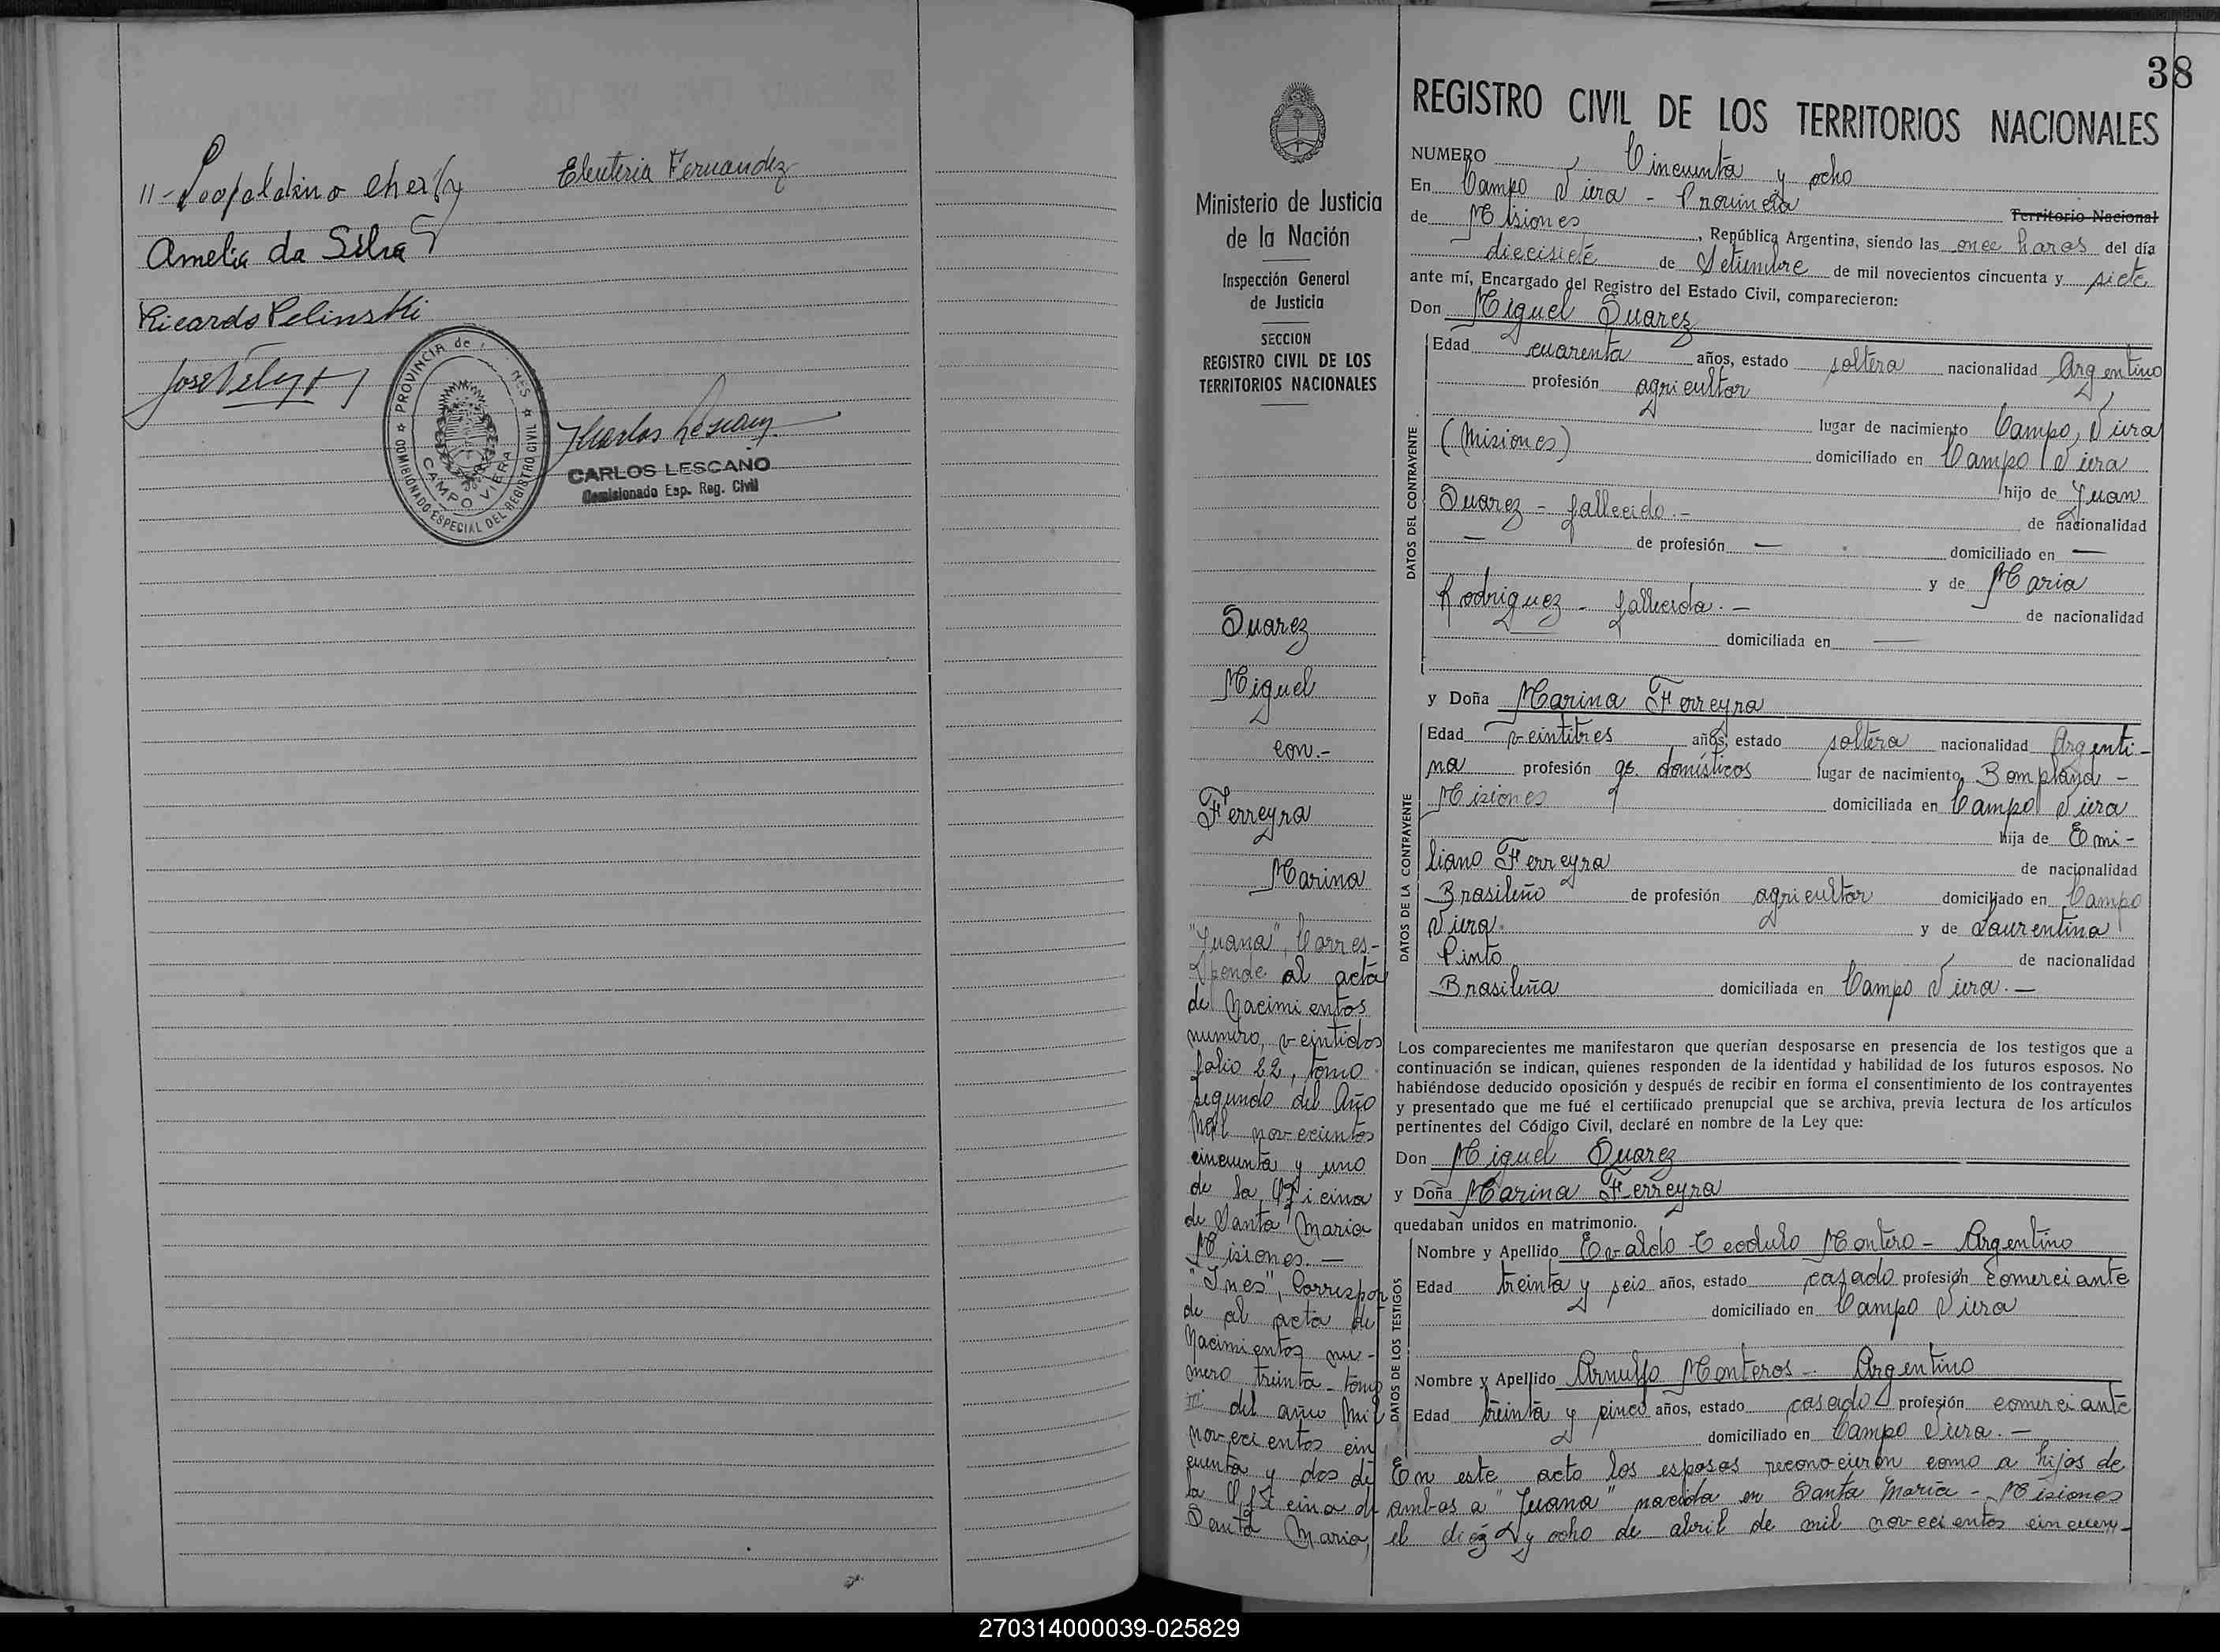 11- Leopoldino
Eleuteria Fernandez
Amelia da Silva
Ricardo Pelinski
Jose
PROVINCIA de NES
COMISIONADO ESPECIAL DEL REGISTRO CIVIL
CAMPO VIERA
CARLOS LESCANO
Comisionado Esp. Reg. Civil
38
Ministerio de Justicia
de la Nación
Inspección General
de Justicia
SECCION
REGISTRO CIVIL DE LOS
TERRITORIOS NACIONALES
Suarez
Miguel
con.-
Ferreyra
Marina
"Juana", Corres-
ponde al acta
de Nacimientos
numero, veintidos
folio 22, tomo
segundo del Año
Mil novecientos
cincuenta y uno
de la Oficina
de Santa Maria
Misiones.—
"Ines", Correspon
de al acta de
Nacimientos nu-
mero treinta - tomo
del año Mil
novecientos cin
cuenta y dos de
la Oficina de
Santa Maria,
REGISTRO CIVIL DE LOS TERRITORIOS NACIONALES
NUMERO Cincuenta y ocho
En Campo Viera - Provincia Territorio Nacional
de Misiones, República Argentina, siendo las once horas del día
diecisiete de Setiembre de mil novecientos cincuenta y siete
ante mí, Encargado del Registro del Estado Civil, comparecieron:
Don Miguel Suarez
DATOS DEL CONTRAYENTE
Edad cuarenta años, estado soltero nacionalidad Argentino
profesión agricultor
lugar de nacimiento Campo Viera
(Misiones) domiciliado en Campo Viera
hijo de Juan
Suarez - fallecido.- de nacionalidad
— de profesión — domiciliado en —
y de Maria
Rodriguez - fallecida.— de nacionalidad
domiciliada en —
y Doña Marina Ferreyra
DATOS DE LA CONTRAYENTE
Edad veintitres años, estado soltera nacionalidad Argenti-
na profesión qs. domésticos lugar de nacimiento Bompland -
Misiones domiciliada en Campo Viera
hija de Emi-
liano Ferreyra de nacionalidad
Brasileño de profesión agricultor domiciliado en Campo
Viera. y de Laurentina
Pinto de nacionalidad
Brasileña domiciliada en Campo Viera.—
Los comparecientes me manifestaron que querían desposarse en presencia de los testigos que a
continuación se indican, quienes responden de la identidad y habilidad de los futuros esposos. No
habiéndose deducido oposición y después de recibir en forma el consentimiento de los contrayentes
y presentado que me fué el certificado prenupcial que se archiva, previa lectura de los artículos
pertinentes del Código Civil, declaré en nombre de la Ley que:
Don Miguel Suarez
y Doña Marina Ferreyra
quedaban unidos en matrimonio.
DATOS DE LOS TESTIGOS
Nombre y Apellido Evaldo Teodulo Montero - Argentino
Edad treinta y seis años, estado casado profesión comerciante
domiciliado en Campo Viera
Nombre y Apellido Arnulfo Monteros - Argentino
Edad treinta y cinco años, estado casado profesión comerciante
domiciliado en Campo Viera.—
En este acto los esposos reconocieron como a hijos de
ambos a "Juana" nacida en Santa Maria - Misiones
el diez y ocho de abril de mil novecientos cincuen-
270314000039-025829